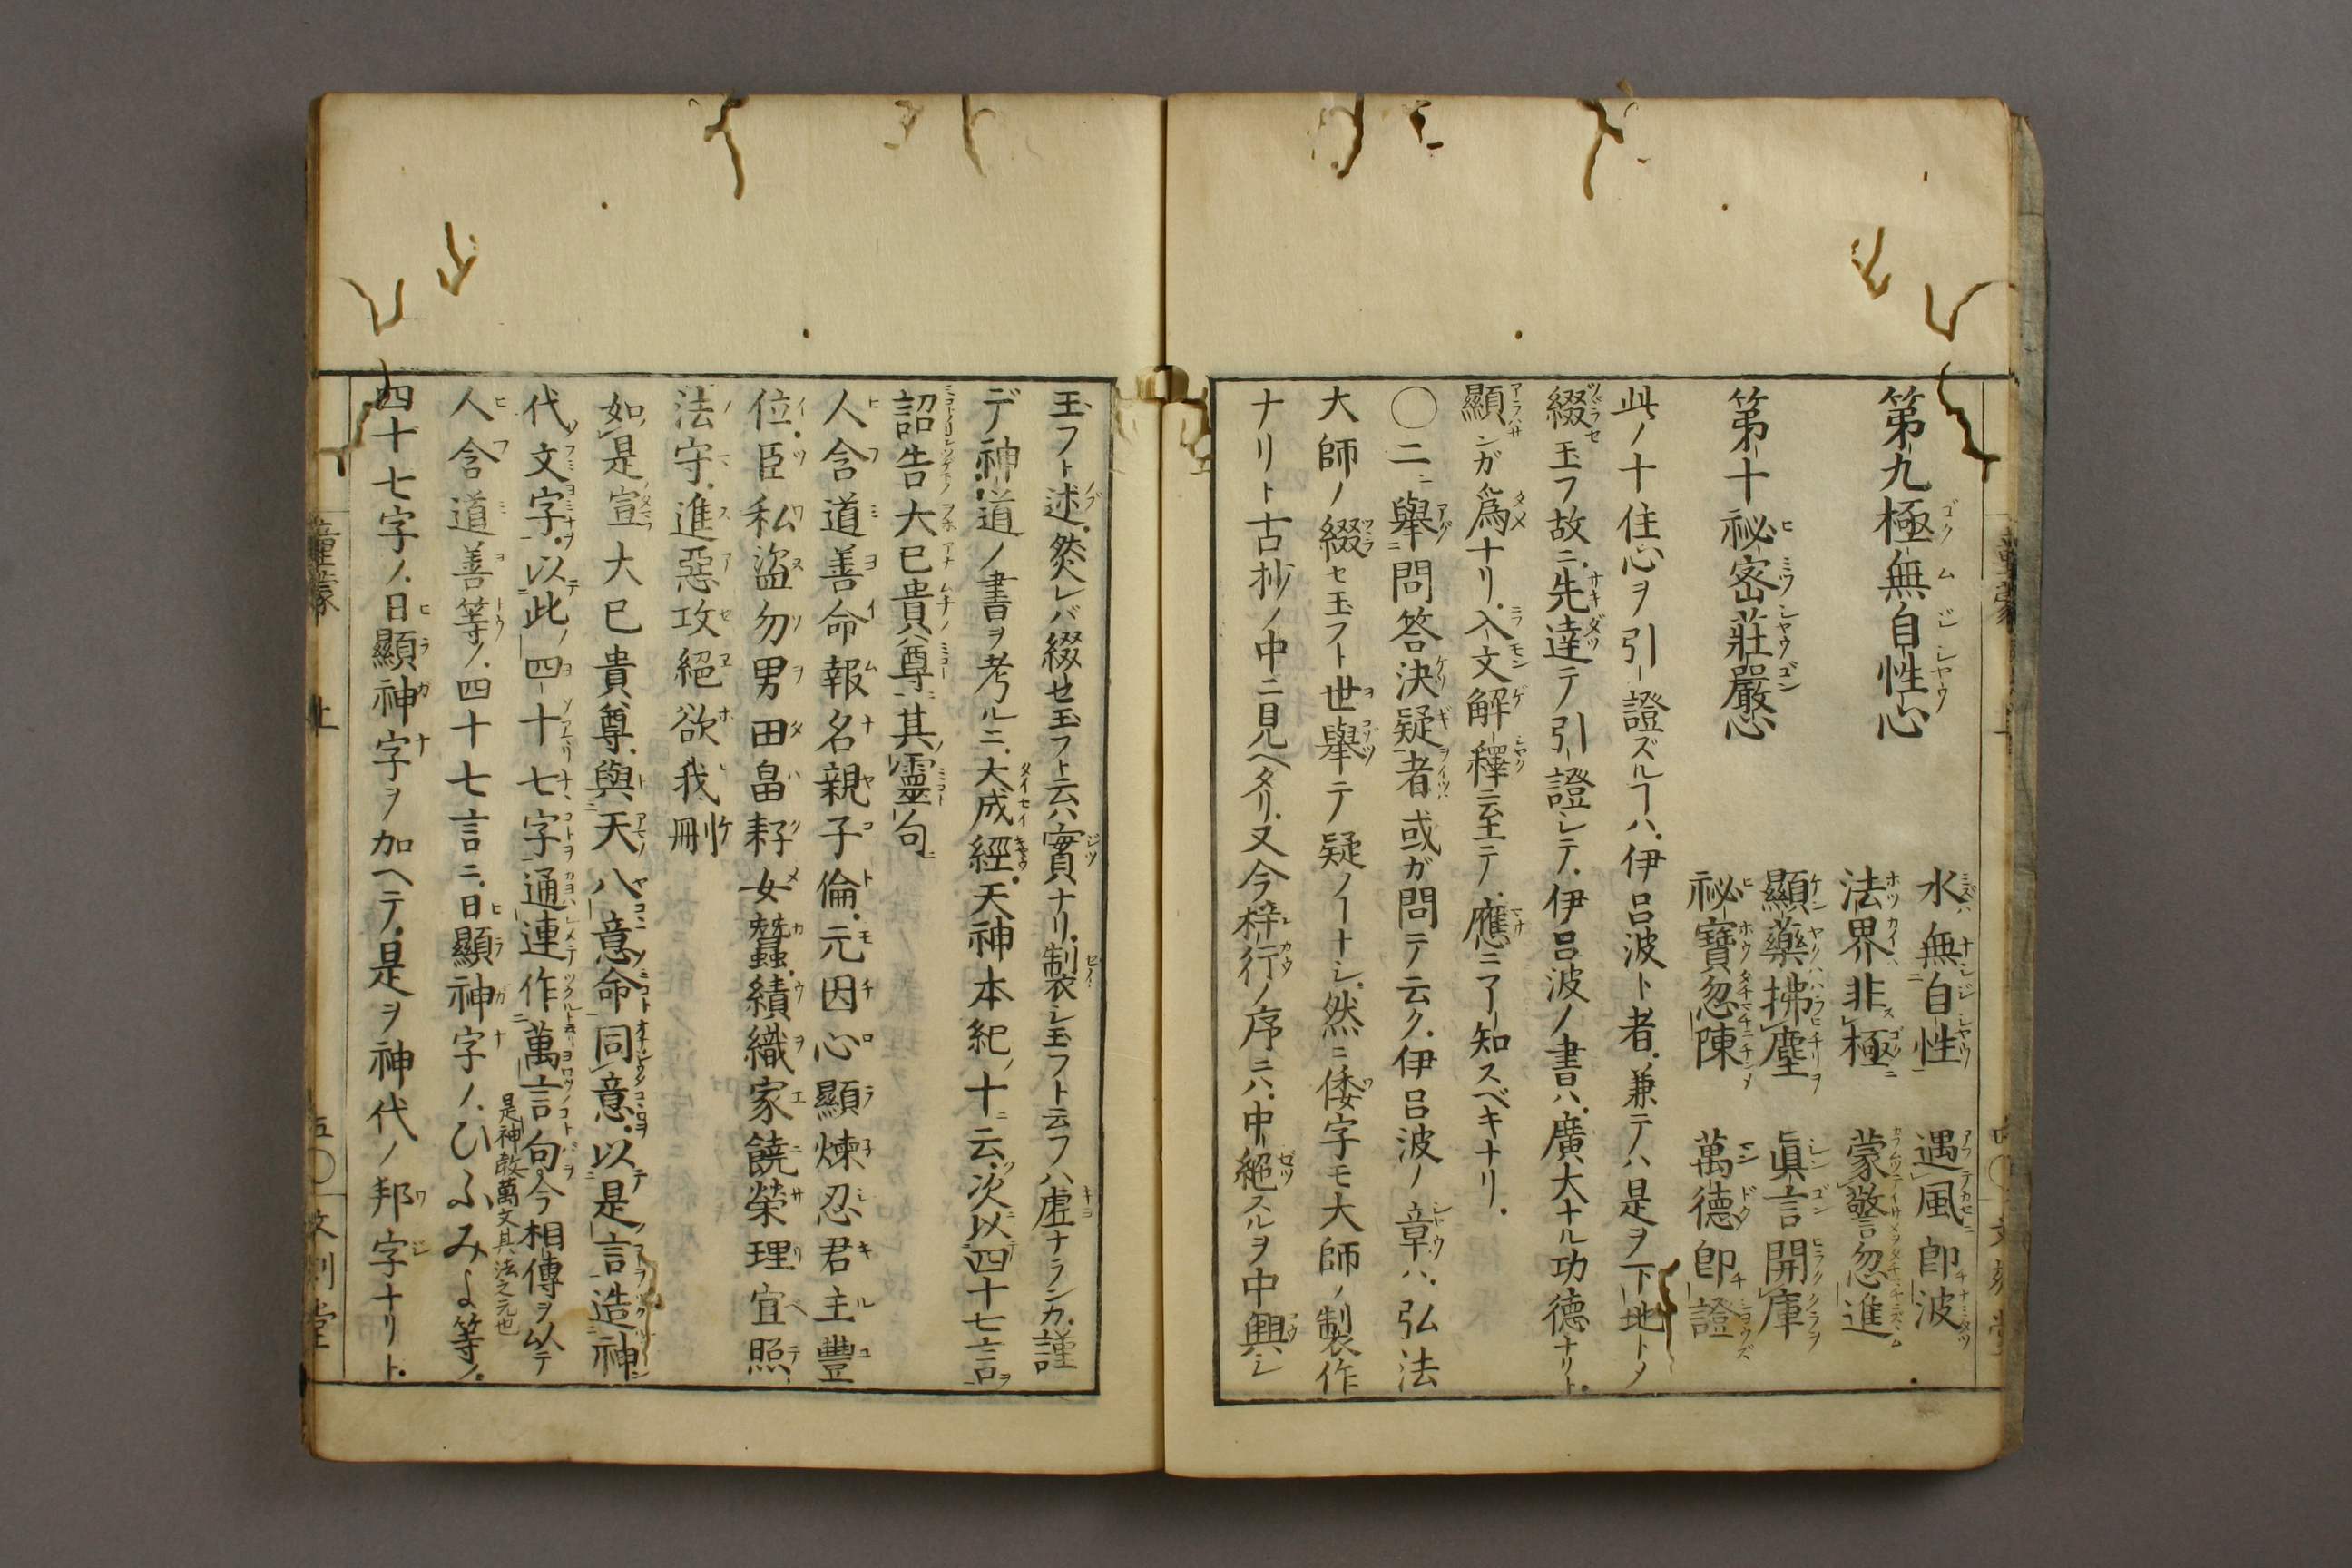 第九極無自性心
水無自性 遇風即波
法界非極 蒙警忽進
第十祕密莊嚴心
顯藥拂塵 眞言開庫
祕寶忽陳 萬德即證
此ノ十住心ヲ引證ズルヿハ伊呂波ト者兼テハ是ヲ下地トメ
綴玉フ故ニ先達テ引證シテ伊呂波ノ書ハ廣大ナル功德ナリト
顯ンガ爲ナリ入文解釋ニ至テ應ニ知スベキナリ
〇二ニ舉問答決疑者或ガ問テ云ク伊呂波ノ章ハ弘法
大師ノ綴セ玉フト世舉テ疑ノートシ然ニ倭字モ大師ノ製作
ナリト古抄ノ中ニ見ヘタリ又今梓行ノ序ニハ中絕スルヲ中興シ
玉フト述然レバ綴セ玉フト云ハ實ナリ製シ玉フト云フハ虛ナランカ謹
デ神道ノ書ヲ考ルニ大成經天神本紀ノ十ニ云次以四十七言ヲ
詔告大已貴尊其靈句
人含道善命報名親子倫元因心顯煉忍君主豐
位臣私盜勿男田畠耔女蠶績織家饒榮理宜照
法守進惡攻絕欲我刪
如是宣大已貴尊與天八意命同意以是言造神
代文字以此四十七字通連作萬言句今相傳ヲ以テ
是神敎萬文其法之元也
人含道善等ノ四十七言ニ日顯神字ノひふみよ等ノ
四十七字ノ日顯神字ヲ加ヘテ是ヲ神代ノ邦字ナリト
童蒙 上
五〇文刻堂